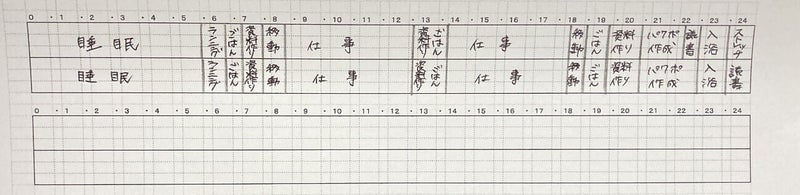 0 · 1 · 2 · 3 · 4 · 5 · 6 · 7 · 8 · 9 · 10 · 11 · 12 · 13 · 14 · 15 · 16 · 17 · 18 · 19 · 20 · 21 · 22 · 23 · 24
睡眠 ランニング ごはん 資料作り 移動 仕事 資料作り ごはん 仕事 移動 ごはん 資料作り パワポ作成 読書 入浴 ストレッチ
睡眠 ランニング ごはん 資料作り 移動 仕事 資料作り ごはん 仕事 移動 ごはん 資料作り パワポ作成 入浴 読書
0 · 1 · 2 · 3 · 4 · 5 · 6 · 7 · 8 · 9 · 10 · 11 · 12 · 13 · 14 · 15 · 16 · 17 · 18 · 19 · 20 · 21 · 22 · 23 · 24